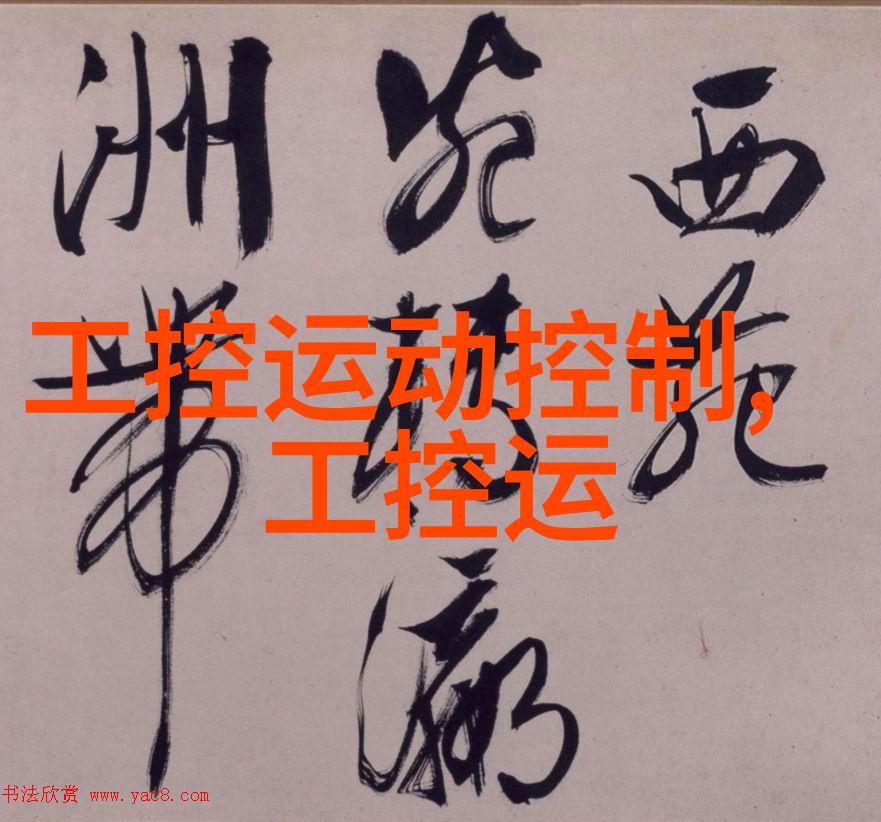 西苑
瀛
洲帶
工控运动控制,
工控运
书法欣赏 www.yac8.com